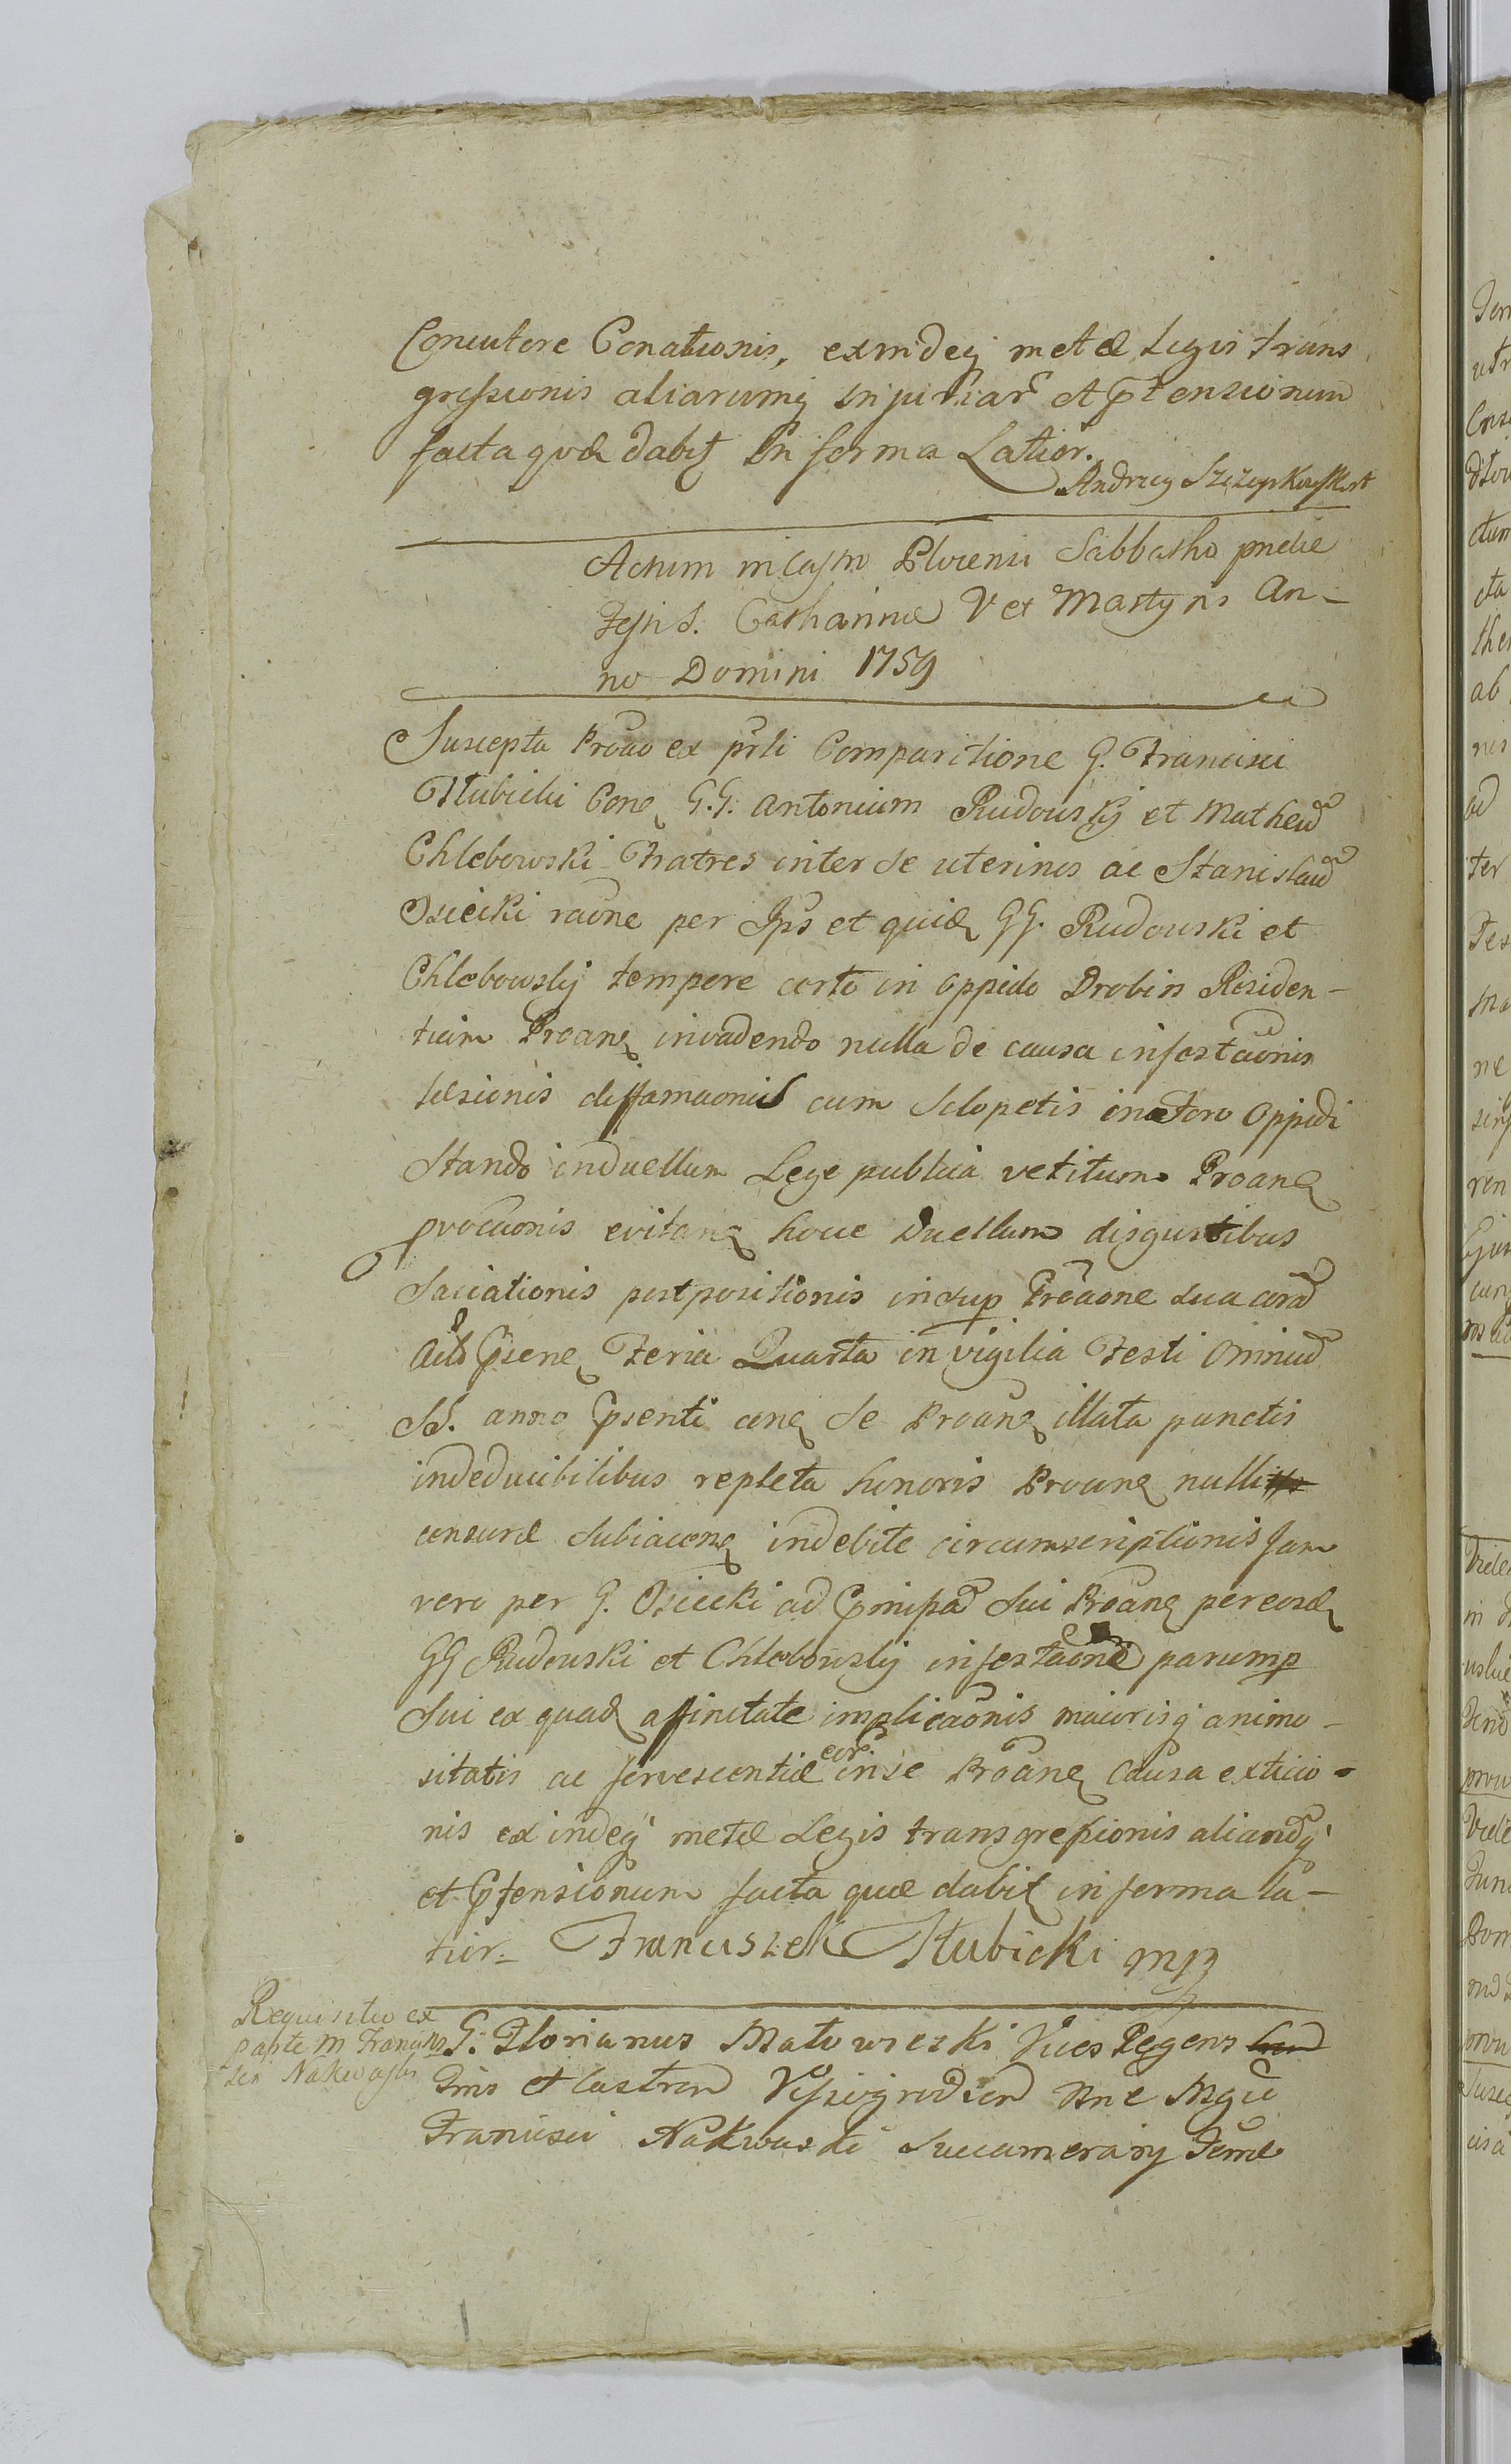 Concutore Conationis, exindeq metæ Legis trans
gressionis aliarumq injuriar et Ptensionum
facta quæ dabit In forma Latior.
Andrzey Szczepkowski
Actum in Castro Plocensi Sabbatho pridie
Festi S. Catharinæ V et Martyris An-
no Domini 1759
Suscepta Protao ex prsli Comparitione G. Francisci
Słubicki Con G.G. Antonium Rudowskij et Matheu
Chlebowski Fratres inter se uterinos ac Stanislau
Osiecki raone per Ips et quide GG. Rudowski et
Chlebowskj tempore certo in Oppido Drobin Residen-
tiam Proan invadendo nulla de causa infestaonis
læsionis diffamaonis cum Sclopetis in Foro Oppidi
Stando in duellum Lege publica vetitum Proan
provcaonis evitan hocce Duellum disgustibus
Saciationis postpositionis insup Proaone sua cora
Actis Psene Feria Quarta in vigilia Festi Omniu
SS. anno Psenti con se Proan illata punctis
indeducibilibus repleta honoris Proan nulli
censuræ Subiacen indebite circumscriptionis Jam
vero per G. Osiecki ad Pmipa sui Proan per eosd
GG Rudowski et Chlebowskj infestaone parump
Sui ex quad affinitate implicaonis maiorisq animo-
sitatis ac fervescentiæ eor in se Proan Causa exticio-
nis exindeq metæ Legis transgressionis aliarudq
et Ptensionum facta quæ dabit in forma la-
tior. Franciszek Słubicki mp
Requisitio ex
parte M Francis
sci Nakwaski
G. Florianus Małowieski Vices Regens
Tris et Castren Vissogrodien Nne Mgci
Francisci Nakwaski Succamerarij Terræ